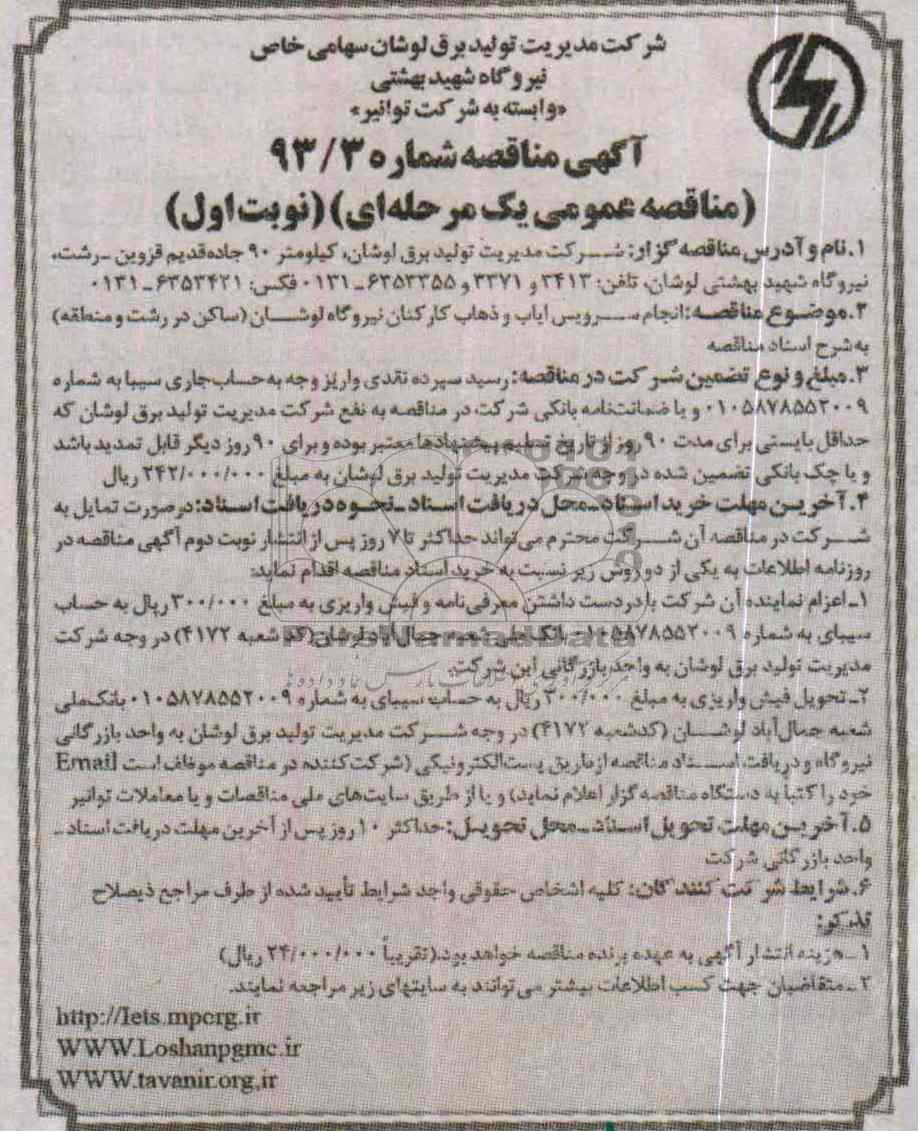 شرکت مدیریت تولید برق لوشان سهامی خاص
نیروگاه شهید بهشتی
«وابسته به شرکت توانیر»
آگهی مناقصه شماره ۹۳/۳
(مناقصه عمومی یک مرحله‌ای) (نوبت اول)
۱. نام و آدرس مناقصه گزار: شرکت مدیریت تولید برق لوشان، کیلومتر ۹۰ جاده قدیم قزوین ـ رشت،
نیروگاه شهید بهشتی لوشان، تلفن: ۳۴۱۳ و ۳۳۷۱ و ۶۳۵۳۳۵۵ ـ ۰۱۳۱ فکس: ۶۳۵۳۴۲۱ ـ ۰۱۳۱
۲. موضوع مناقصه: انجام سرویس ایاب و ذهاب کارکنان نیروگاه لوشان (ساکن در رشت و منطقه)
به شرح اسناد مناقصه
۳. مبلغ و نوع تضمین شرکت در مناقصه: رسید سپرده نقدی واریز وجه به حساب جاری سیبا به شماره
۰۱۰۵۸۷۸۵۵۲۰۰۹ و یا ضمانتنامه بانکی شرکت در مناقصه به نفع شرکت مدیریت تولید برق لوشان که
حداقل بایستی برای مدت ۹۰ روز از تاریخ تسلیم پیشنهادها معتبر بوده و برای ۹۰ روز دیگر قابل تمدید باشد
و یا چک بانکی تضمین شده در وجه شرکت مدیریت تولید برق لوشان به مبلغ ۲۴۲/۰۰۰/۰۰۰ ریال
۴. آخرین مهلت خرید اسناد ـ محل دریافت اسناد ـ نحوه دریافت اسناد: در صورت تمایل به
شرکت در مناقصه آن شرکت محترم می‌تواند حداکثر تا ۷ روز پس از انتشار نوبت دوم آگهی مناقصه در
روزنامه اطلاعات به یکی از دو روش زیر نسبت به خرید اسناد مناقصه اقدام نماید:
۱ـ اعزام نماینده آن شرکت با در دست داشتن معرفی‌نامه و فیش واریزی به مبلغ ۳۰۰/۰۰۰ ریال به حساب
سیبای به شماره ۰۱۰۵۸۷۸۵۵۲۰۰۹ بانک ملی شعبه جمال‌آباد لوشان (کد شعبه ۴۱۷۲) در وجه شرکت
مدیریت تولید برق لوشان به واحد بازرگانی این شرکت.
۲ـ تحویل فیش واریزی به مبلغ ۳۰۰/۰۰۰ ریال به حساب سیبای به شماره ۰۱۰۵۸۷۸۵۵۲۰۰۹ بانک ملی
شعبه جمال‌آباد لوشان (کد شعبه ۴۱۷۲) در وجه شرکت مدیریت تولید برق لوشان به واحد بازرگانی
نیروگاه و دریافت اسناد مناقصه از طریق پست الکترونیکی (شرکت کننده در مناقصه موظف است Email
خود را کتباً به دستگاه مناقصه گزار اعلام نماید) و یا از طریق سایت‌های ملی مناقصات و یا معاملات توانیر
۵. آخرین مهلت تحویل اسناد ـ محل تحویل: حداکثر ۱۰ روز پس از آخرین مهلت دریافت اسناد ـ
واحد بازرگانی شرکت
۶. شرایط شرکت کنندگان: کلیه اشخاص حقوقی واجد شرایط تأیید شده از طرف مراجع ذیصلاح
تذکر:
۱ـ هزینه انتشار آگهی به عهده برنده مناقصه خواهد بود. (تقریباً ۲۴/۰۰۰/۰۰۰ ریال)
۲ـ متقاضیان جهت کسب اطلاعات بیشتر می‌توانند به سایتهای زیر مراجعه نمایند.
http://Iets.mporg.ir
WWW.Loshanpgmc.ir
WWW.tavanir.org.ir
ParsNamadData